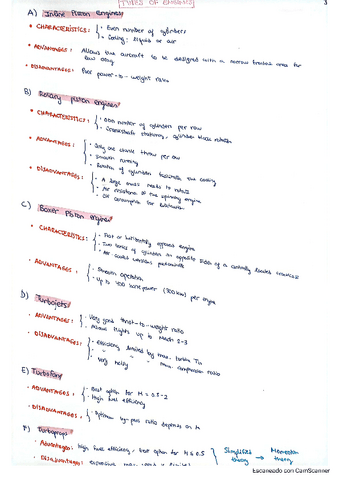 TYPES OF ENGINES
3
A) Inline Piston Engines
• CHARACTERISTICS: • Even number of cylinders
• Cooling: liquid or air
• ADVANTAGES: Allows the aircraft to be designed with a narrow frontal area for
low drag
• DISADVANTAGES: Poor power-to-weight ratio
B) Rotary piston engines
• CHARACTERISTICS: • Odd number of cylinders per row
• Crankshaft stationary, cylinder block rotates
• ADVANTAGES: • Only one crank throw per row
• Smooth running
• Rotation of cylinders facilitate the cooling
• DISADVANTAGES: • A large mass needs to rotate
• Air resistance of the spinning engine
• Oil consumption for lubrication
C) Boxer Piston engine
• CHARACTERISTICS: • Flat or horizontally opposed engine
• Two banks of cylinders on opposite sides of a centrally located crankcase
• Air cooled versions predominate
• ADVANTAGES: • Smooth operation
• Up to 400 horsepower (300 kW) per engine
D) Turbojets
• ADVANTAGES: • Very good thrust-to-weight ratio
• Allows flights up to Mach 2-3
• DISADVANTAGES: • Efficiency limited by max. turbine
• max. compression ratio
• Very noisy
E) Turbofans
• ADVANTAGES: • Best option for M = 0.5-2
• High fuel efficiency
• DISADVANTAGES: • Optimum by-pass ratio depends on M
F) Turboprops
• Advantages: high fuel efficiency, best option for M ≤ 0.5
Simplified theory → Momentum theory
• Disadvantages: expensive
Escaneado con CamScanner